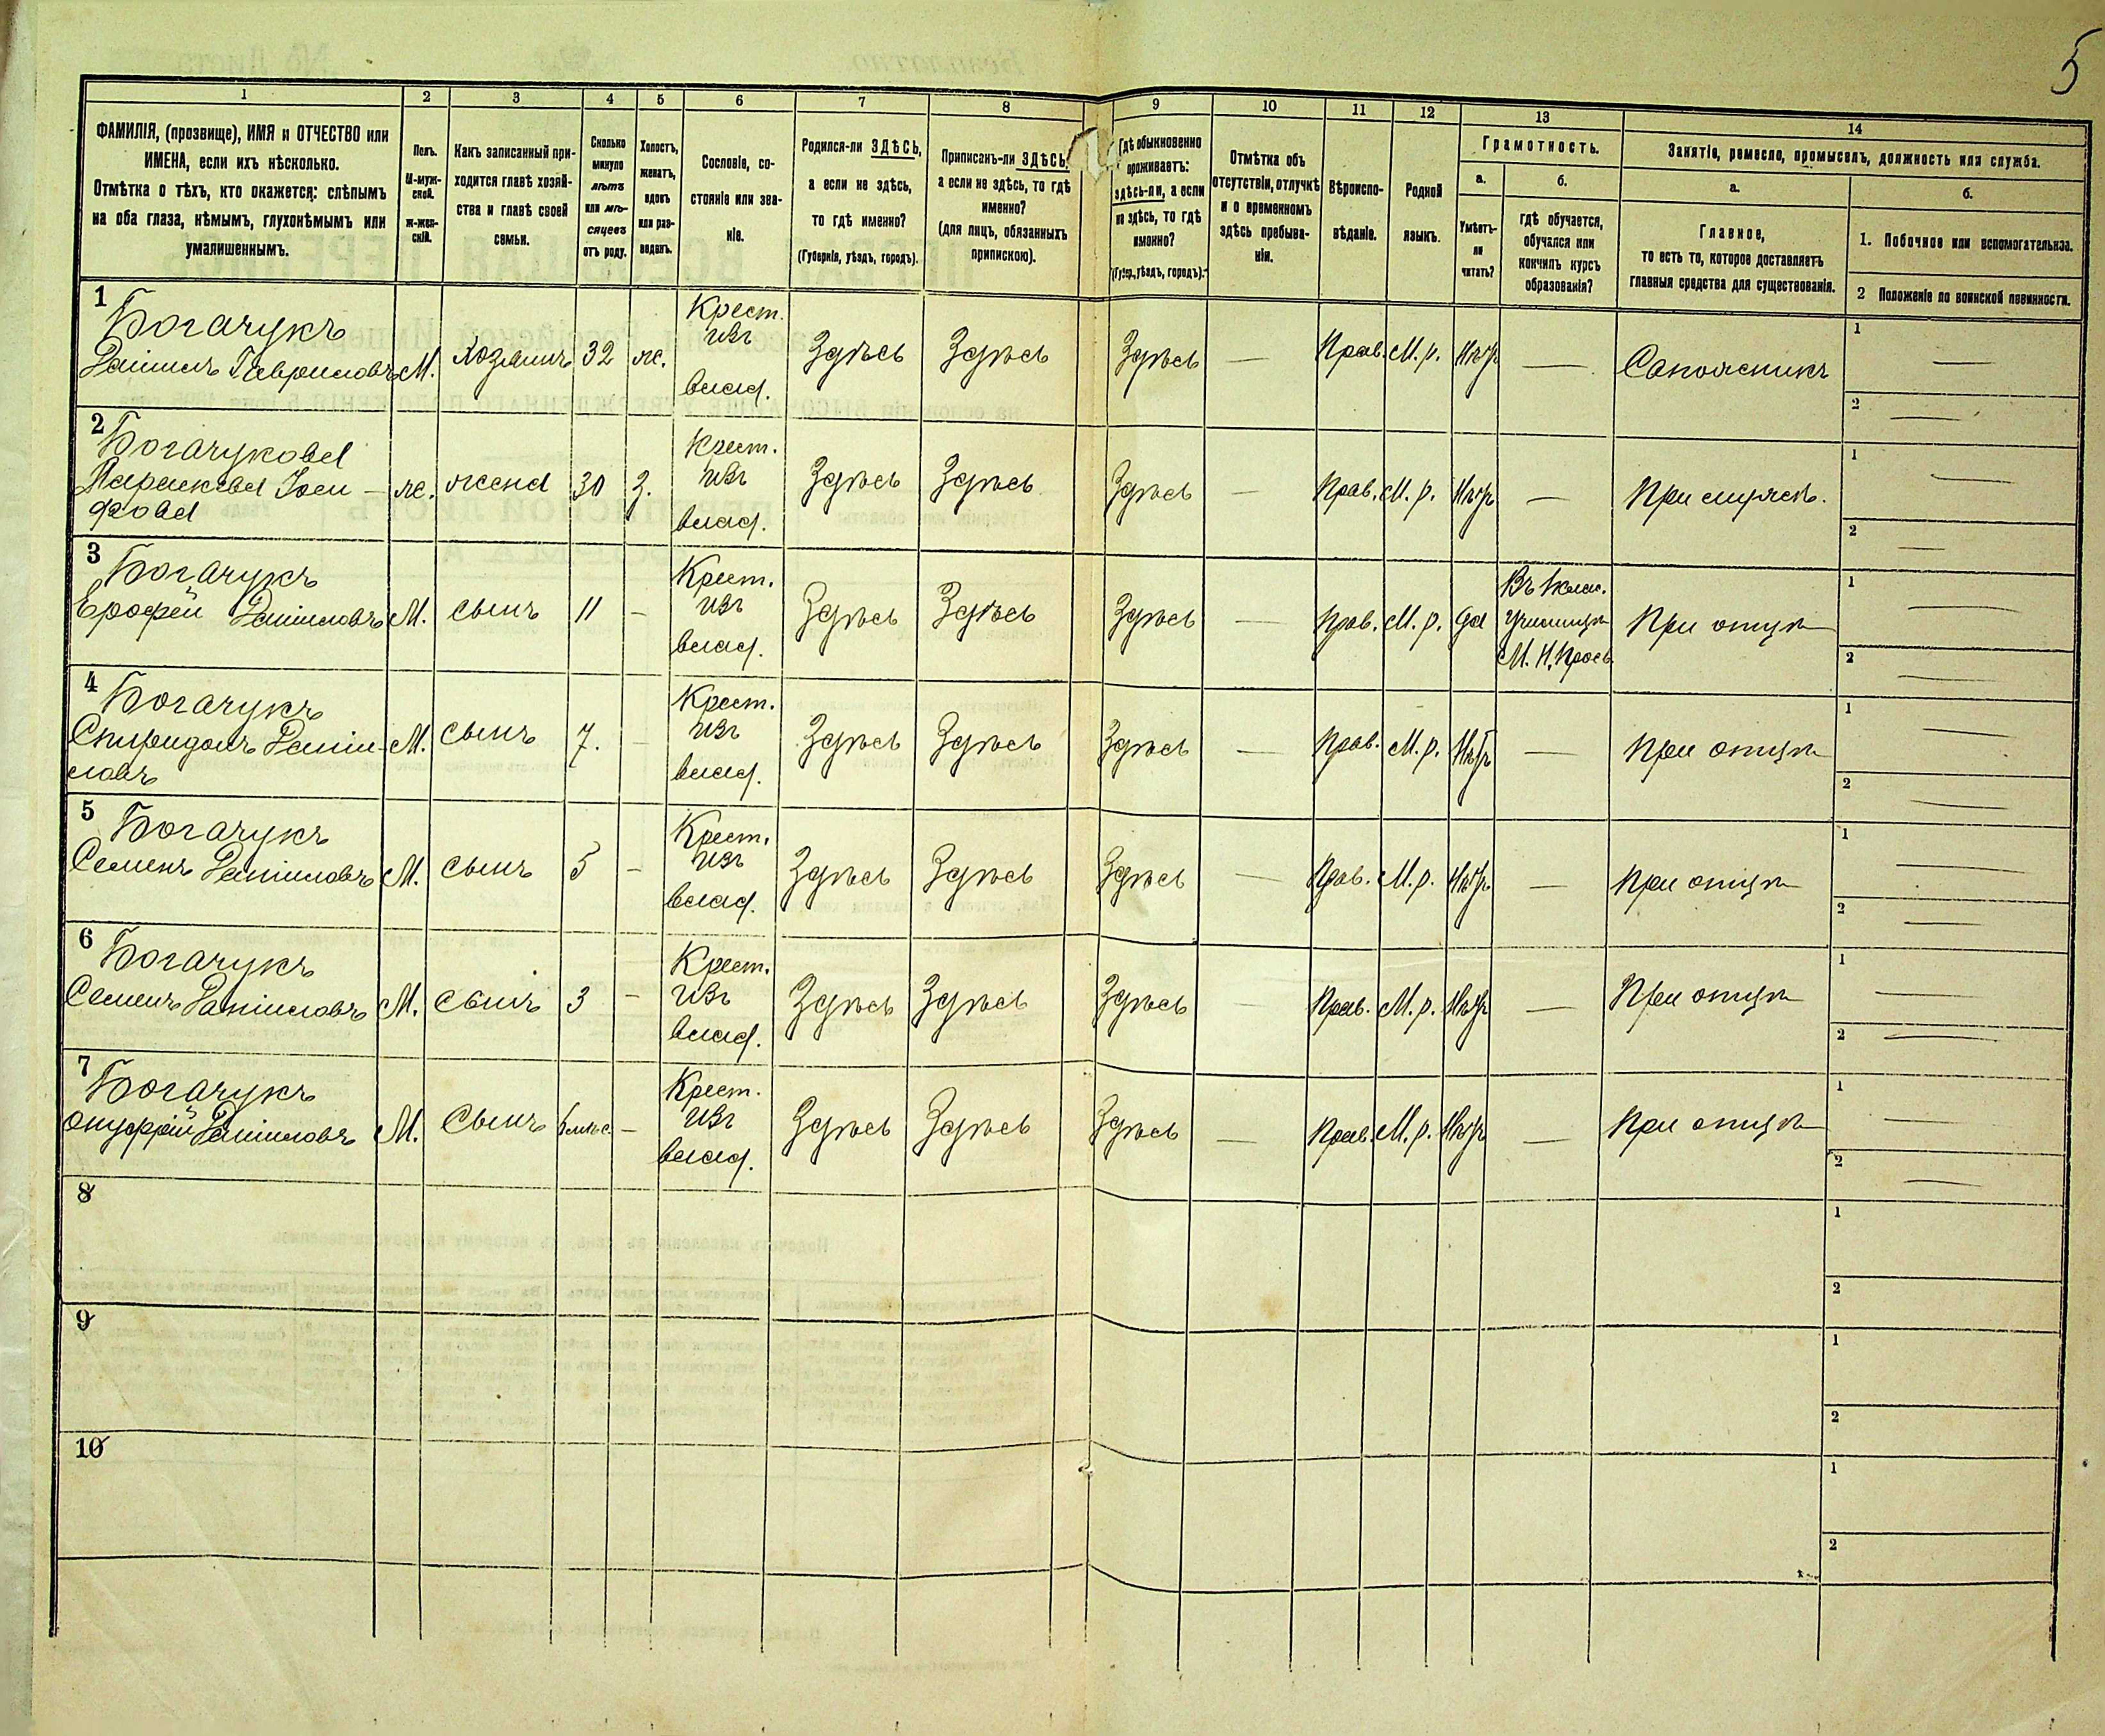 5
1 2 3 4 5 6 7 8 9 10 11 12 13 14
ФАМИЛІЯ, (прозвище), ИМЯ и ОТЧЕСТВО или
ИМЕНА, если ихъ нѣсколько.
Отмѣтка о тѣхъ, кто окажется: слѣпымъ
на оба глаза, нѣмымъ, глухонѣмымъ или
умалишеннымъ.
Полъ.
М-муж-
ской.
ж-жен-
скій.
Какъ записанный при-
ходится главѣ хозяй-
ства и главѣ своей
семьи.
Сколько
минуло
лѣтъ
или мѣ-
сяцевъ
отъ роду.
Холостъ,
женатъ,
вдовъ
или раз-
веденъ.
Сословіе, со-
стояніе или зва-
ніе.
Родился-ли ЗДѢСЬ,
а если не здѣсь,
то гдѣ именно?
(Губернія, уѣздъ, городъ).
Приписанъ-ли ЗДѢСЬ,
а если не здѣсь, то гдѣ
именно?
(для лицъ, обязанныхъ
припискою).
Гдѣ обыкновенно
проживаетъ:
здѣсь-ли, а если
не здѣсь, то гдѣ
именно?
(Губер., уѣздъ, городъ).
Отмѣтка объ
отсутствіи, отлучкѣ
и о временномъ
здѣсь пребыва-
ніи.
Вѣроиспо-
вѣданіе.
Родной
языкъ.
Грамотность.
а.
Умѣетъ-
ли
читать?
б.
гдѣ обучается,
обучался или
кончилъ курсъ
образованія?
Занятіе, ремесло, промыселъ, должность или служба.
а.
Главное,
то есть то, которое доставляетъ
главныя средства для существованія.
б.
1. Побочное или вспомогательное.
2 Положеніе по воинской повинности.
1 Богачукъ
Даніилъ Гавриловъ М. Хозяинъ 32 ж. Крест. изъ влад. Здѣсь Здѣсь Здѣсь — Прав. М. р. Нѣтъ — Сапожникъ 1 — 2 —
2 Богачукова
Параскева Іоси-
фова ж. жена 30 З. Крест. изъ влад. Здѣсь Здѣсь Здѣсь — Прав. М. р. Нѣтъ — При мужѣ. 1 — 2 —
3 Богачукъ
Ерофей Даніиловъ М. сынъ 11 — Крест. изъ влад. Здѣсь Здѣсь Здѣсь — Прав. М. р. да Въ 1 клас. училищѣ М. Н. Просв. При отцѣ 1 — 2 —
4 Богачукъ
Спиридонъ Даніи-
ловъ М. сынъ 7. — Крест. изъ влад. Здѣсь Здѣсь Здѣсь — Прав. М. р. Нѣтъ — При отцѣ 1 — 2 —
5 Богачукъ
Семенъ Даніиловъ М. сынъ 5 — Крест. изъ влад. Здѣсь Здѣсь Здѣсь — Прав. М. р. Нѣтъ — При отцѣ 1 — 2 —
6 Богачукъ
Семенъ Даніиловъ М. сынъ 3 — Крест. изъ влад. Здѣсь Здѣсь Здѣсь — Прав. М. р. Нѣтъ — При отцѣ 1 — 2 —
7 Богачукъ
Онуфрій Даніиловъ М. Сынъ — Крест. изъ влад. Здѣсь Здѣсь Здѣсь — Прав. М. р. Нѣтъ — При отцѣ 1 — 2 —
8 1 2
9 1 2
10 1 2